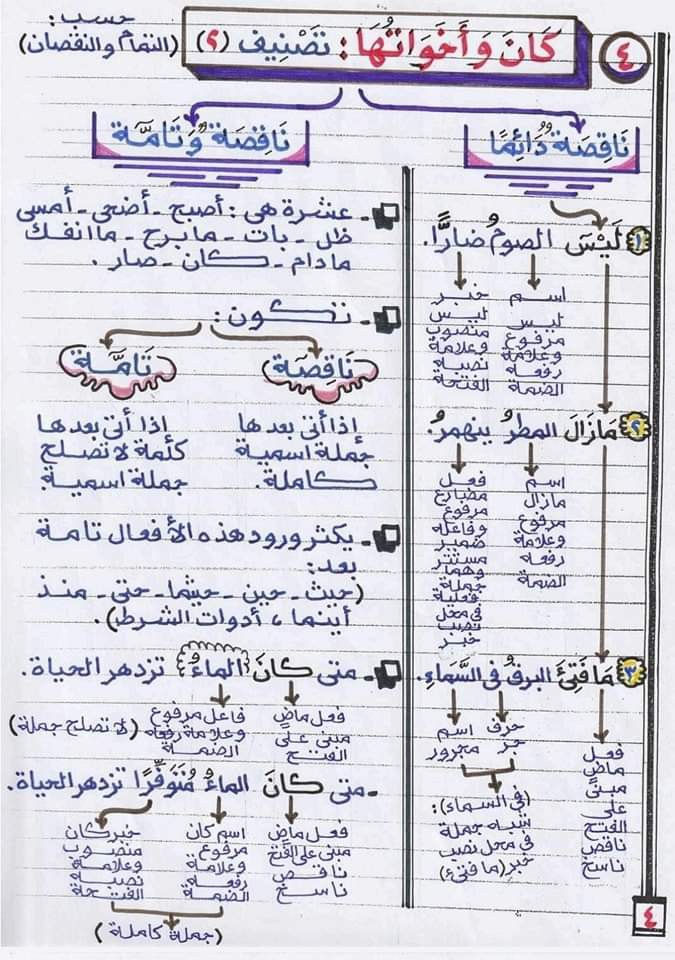 ٤
كَانَ وَأَخَوَاتُهَا: تَصْنِيف (٢)
حسب:
(التمام والنقصان)
نَاقِصَة دَائِمًا
١ لَيْسَ الصومُ ضارًّا.
اسم
ليس
مرفوع
وعلامة
رفعه
الضمة
خبر
ليس
منصوب
وعلامة
نصبه
الفتحة
٢ مَازَالَ المطرُ ينهمرُ.
اسم
مازال
مرفوع
وعلامة
رفعه
الضمة
فعل
مضارع
مرفوع
وفاعله
ضمير
مستتر
وهما
جملة
فعلية
في محل
نصب
خبر
٣ مَا فَتِئَ البرقُ في السَّمَاءِ.
فعل
ماضٍ
مبني
على
الفتح
ناقص
ناسخ
حرف
جر
اسم
مجرور
(في السماء):
شبه جملة
في محل نصب
خبر (ما فتئ)
نَاقِصَة وَتَامَّة
- عشرة هي: أصبح - أضحى - أمسى
ظل - بات - مابرح - ماانفك
مادام - كان - صار.
- تكون:
نَاقِصَة
إذا أتى بعدها
جملة اسمية
كاملة.
تَامَّة
إذا أتى بعدها
كلمة لا تصلح
جملة اسمية.
- يكثر ورود هذه الأفعال تامة
بعد:
(حيث - حين - حيثما - حتى - منذ
أينما، أدوات الشرط).
- متى كَانَ الماءُ تزدهر الحياة.
فعل ماضٍ
مبني على
الفتح
فاعل مرفوع
وعلامة رفعه
الضمة
(لا تصلح جملة)
- متى كَانَ الماءُ مُتَوَفِّرًا تزدهر الحياة.
فعل ماضٍ
مبني على الفتح
ناقص
ناسخ
اسم كان
مرفوع
وعلامة
رفعه
الضمة
خبر كان
منصوب
وعلامة
نصبه
الفتحة
(جملة كاملة)
٤